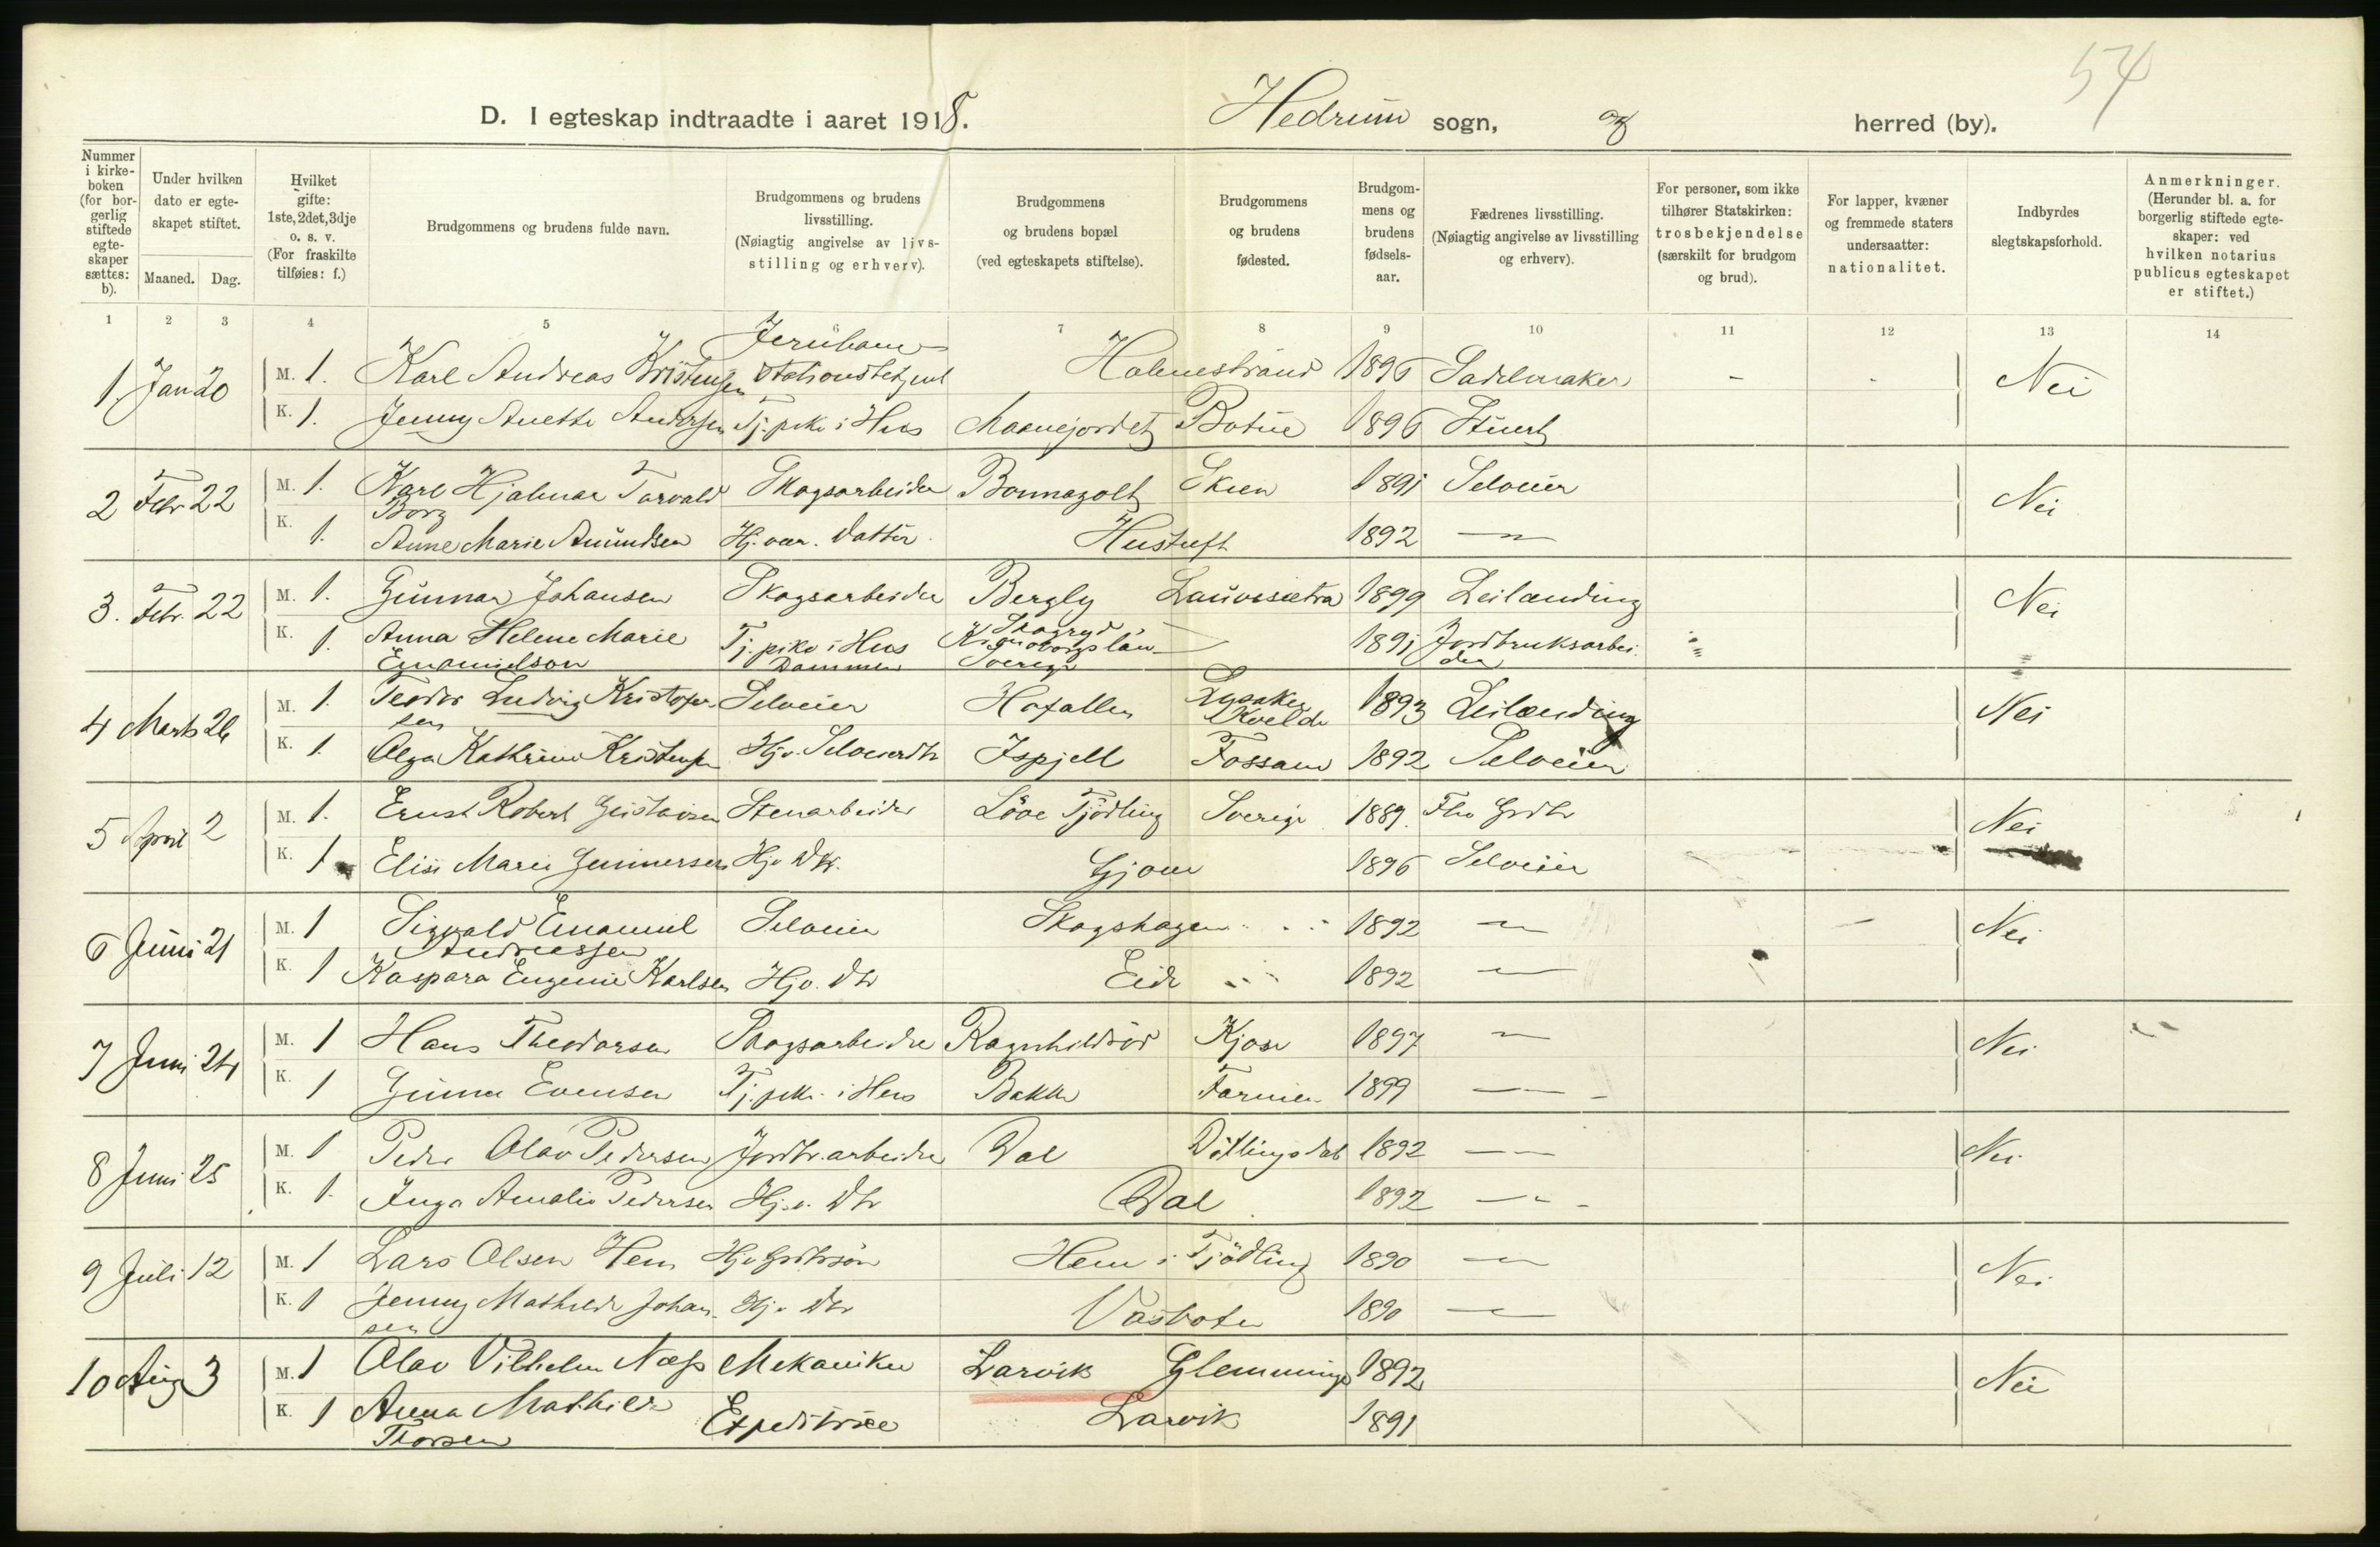 54
D. I egteskap indtraadte i aaret 1918. Hedrum sogn, og herred (by).
Nummer i kirkeboken (for borgerlig stiftede egteskaper sættes: b).
Under hvilken dato er egteskapet stiftet.
Maaned. Dag.
Hvilket gifte: 1ste, 2det, 3dje o. s. v. (For fraskilte tilføies: f.)
Brudgommens og brudens fulde navn.
Brudgommens og brudens livsstilling. (Nøiagtig angivelse av livsstilling og erhverv).
Brudgommens og brudens bopæl (ved egteskapets stiftelse).
Brudgommens og brudens fødested.
Brudgommens og brudens fødselsaar.
Fædrenes livsstilling. (Nøiagtig angivelse av livsstilling og erhverv).
For personer, som ikke tilhører Statskirken: trosbekjendelse (særskilt for brudgom og brud).
For lapper, kvæner og fremmede staters undersaatter: nationalitet.
Indbyrdes slegtskapsforhold.
Anmerkninger. (Herunder bl. a. for borgerlig stiftede egteskaper: ved hvilken notarius publicus egteskapet er stiftet.)
1 2 3 4 5 6 7 8 9 10 11 12 13 14
1 Jan 20 M. 1. Karl Andreas Kristensen Jernbane Stationsbetjent Holmestrand 1896 Sadelmaker - - Nei
K. 1. Jenny Anette Andersen Tj. pike i Hus Maanejordet Botne 1896
2 Febr 22 M. 1. Karl Hjalmar Torvald Borg Skogsarbeider Skien 1891 Selveier Nei
K. 1. Anne Marie Amundsen Hj. vær. Datter Hustuft 1892 —"—
3. Febr. 22 M. 1. Gunnar Johansen Skogsarbeider Bergly Lauvesætra 1899 Leilænding Nei
K. 1. Anna Helene Marie Emanuelson Tj. pike i Hus Dammen Skogryd Kronobergs län Sverige 1891 Jordbruksarbeider
4 Marts 26 M. 1. Teodor Ludvig Kristofersen Selveier Hofallen Kvelde 1893 Leilænding Nei
K. 1. Olga Kathrine Kristensen Hj. v. Selveierdtr Ispjell Fossane 1892 Selveier
5 April 2 M. 1. Ernst Robert Gustavsen Stenarbeider Löve Tjödling Sverige 1889. Fhv Grdbr Nei
K. 1 Elise Marie Gunnersen Hjv Dtr. Gjone 1896 Selveier
6 Juni 21 M. 1 Sigvald Emanuel Andreassen Selveier Skogshagen 1892 —"— Nei
K. 1 Kaspara Eugenie Karlsen Hjv. Dtr Eide 1892 —"—
7 Juni 24 M. 1 Hans Theodorsen Skogsarbeider Ragnhildsröd Kjose 1897 —"— Nei
K. 1 Gunna Evensen Tj. pike i Hus Bakke Farmen 1899 —"—
8 Juni 25 M. 1 Peder Olav Pedersen Jordbr.arbeider Dal 1892 —"— Nei
K. 1. Inga Amalie Pedersen Hj.v. Dtr Dal 1892 —"—
9 Juli 12 M. 1 Lars Olsen Hem Hjv Grdbrsøn Hem i Tjödling 1890 —"— Nei
K. 1 Jenny Mathilde Johansen Hjv Dtr Vasbotn 1890 —"—
10 Aug 3 M. 1 Olav Vilhelm Næss Mekaniker Larvik Glemminge 1892 Nei
K. 1 Anna Mathilde Thorsen Expeditrice Larvik 1891